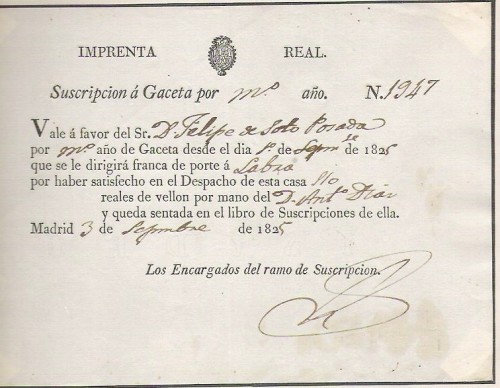 IMPRENTA REAL.
Suscripcion á Gaceta por m.º año. N. 1947
Vale á favor del Sr. D. Felipe de Soto Posada
por m.º año de Gaceta desde el dia 1.º de Sepm.re de 1825
que se le dirigirá franca de porte á Labra
por haber satisfecho en el Despacho de esta casa 110
reales de vellon por mano del D. Ant.º Diaz
y queda sentada en el libro de Suscripciones de ella.
Madrid 3 de Sepmbre de 1825
Los Encargados del ramo de Suscripcion.